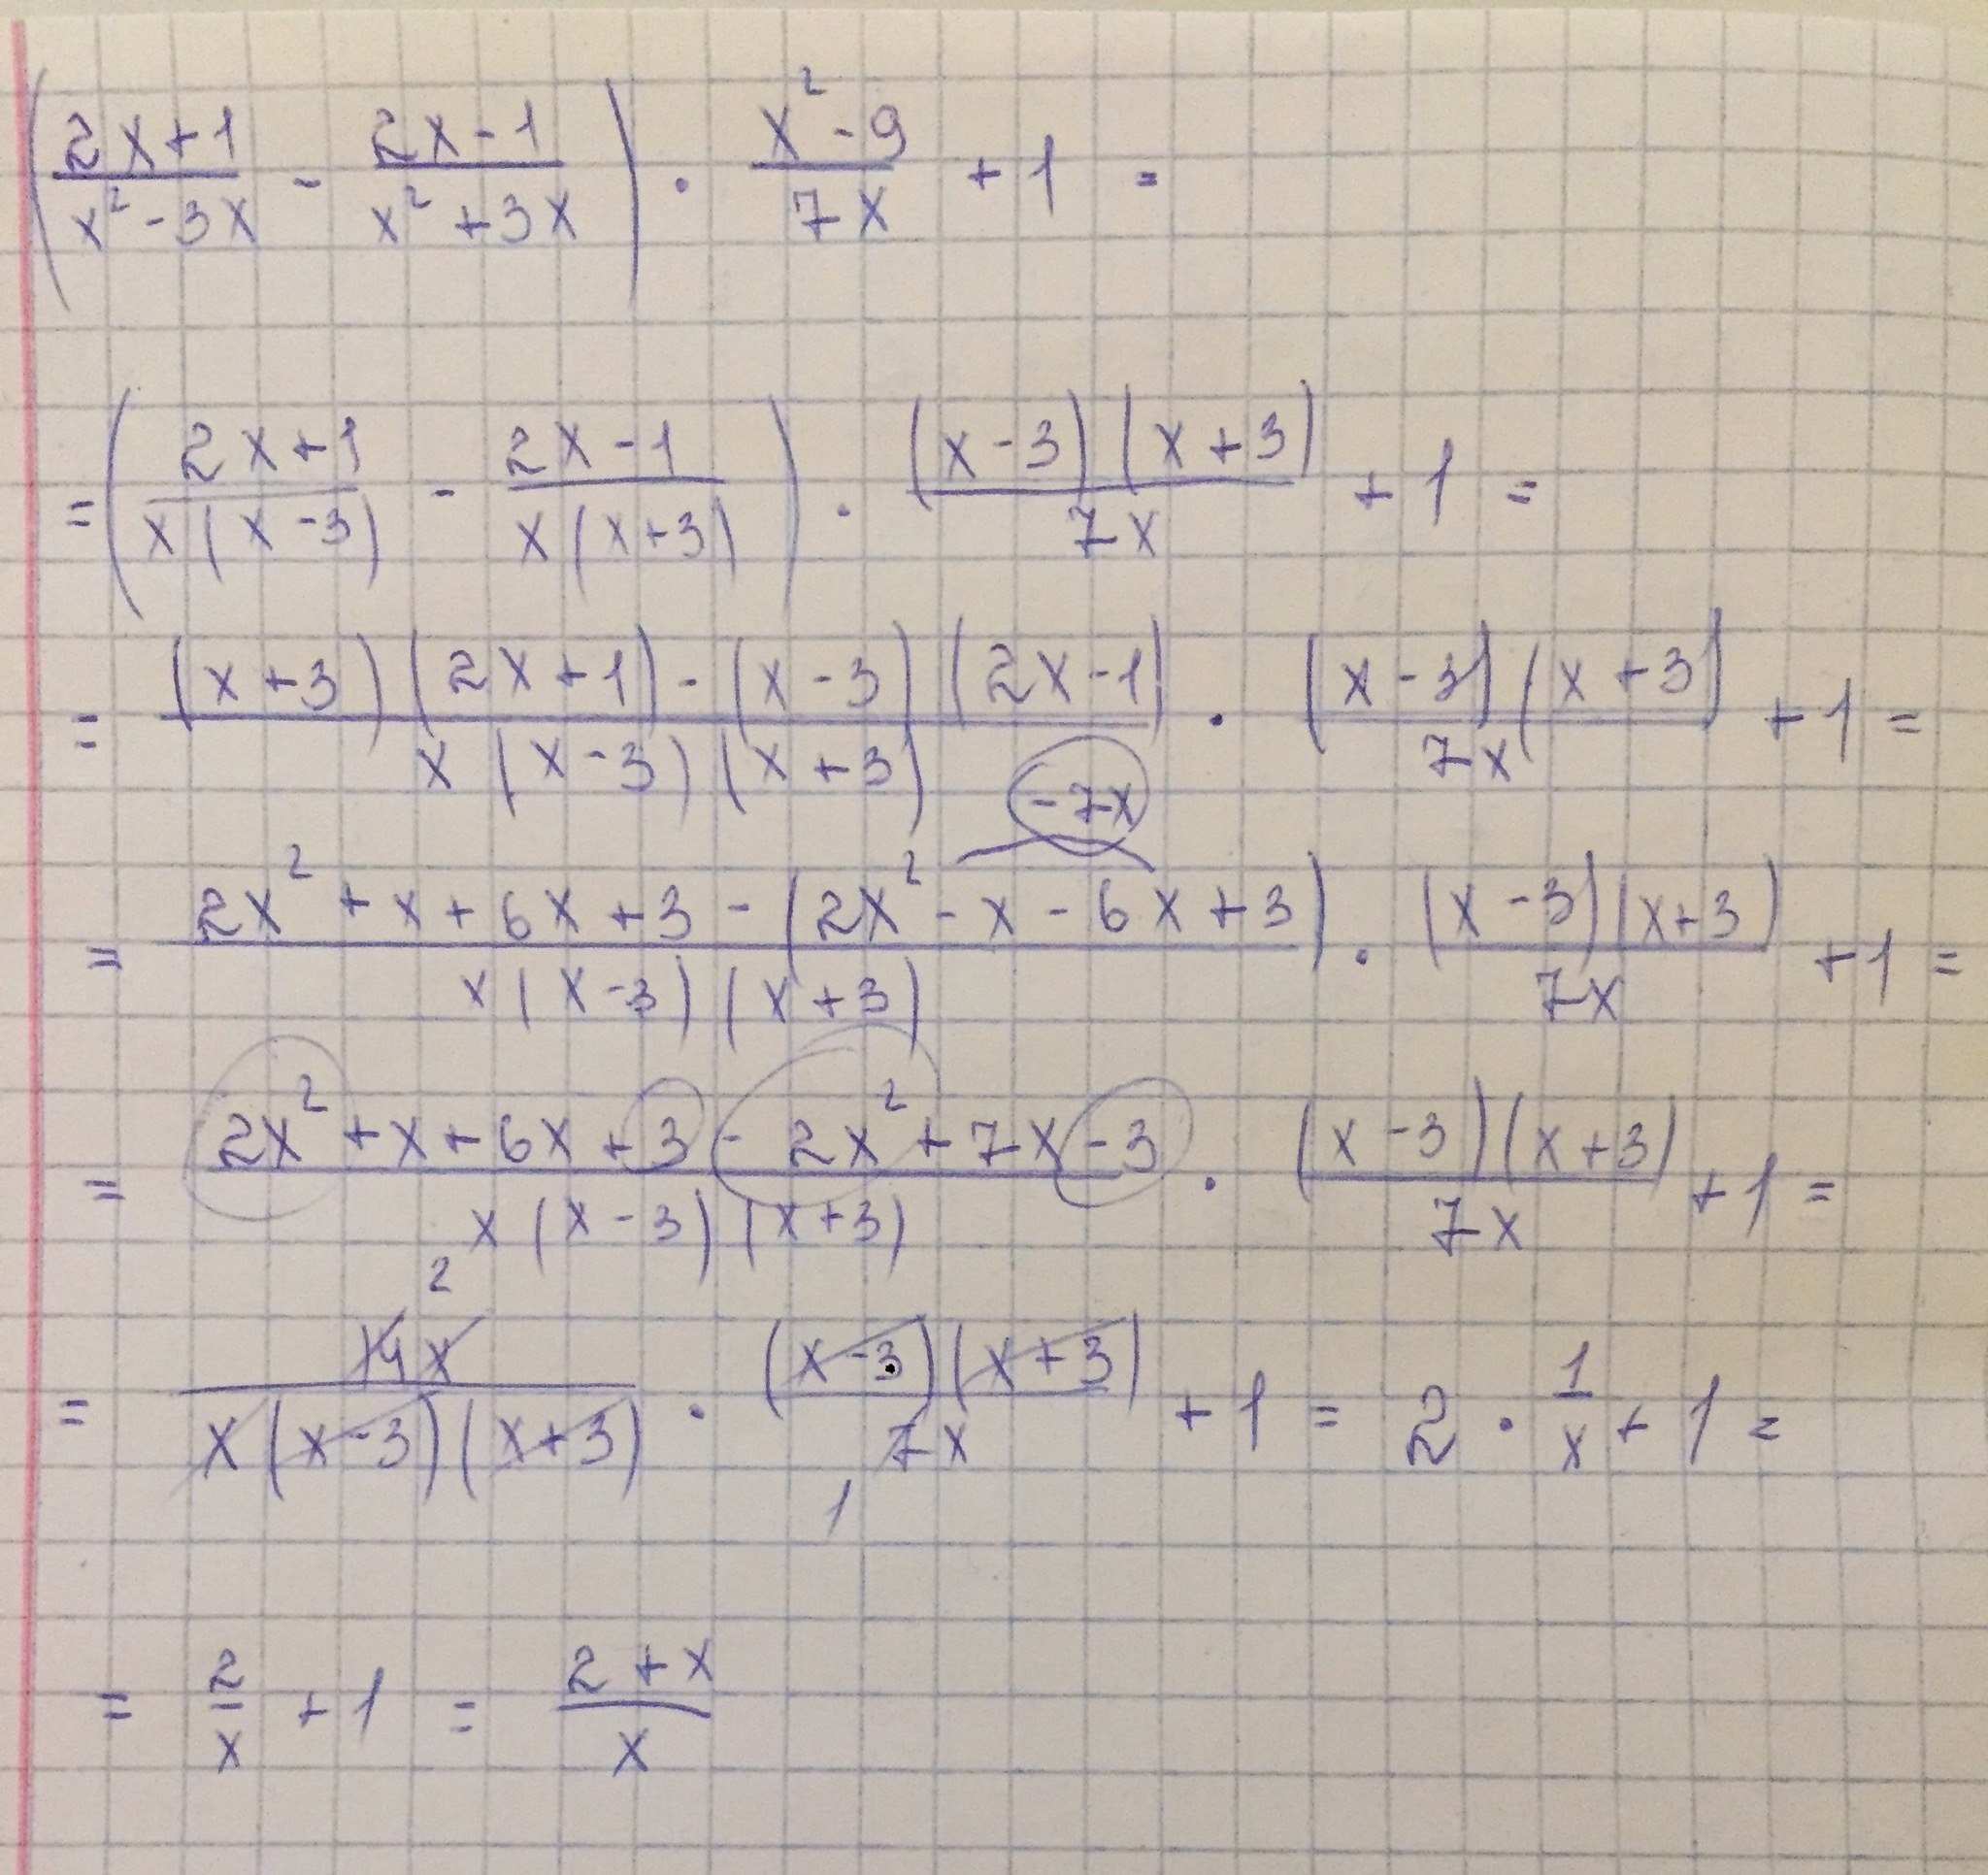 ( (2x+1)/(x²-3x) - (2x-1)/(x²+3x) ) · (x²-9)/(7x) + 1 =
= ( (2x+1)/(x(x-3)) - (2x-1)/(x(x+3)) ) · ((x-3)(x+3))/(7x) + 1 =
= ((x+3)(2x+1)-(x-3)(2x-1))/(x(x-3)(x+3)) · ((x-3)(x+3))/(7x) + 1 =
-7x
= (2x²+x+6x+3-(2x²-x-6x+3))/(x(x-3)(x+3)) · ((x-3)(x+3))/(7x) + 1 =
= (2x²+x+6x+3-2x²+7x-3)/(x(x-3)(x+3)) · ((x-3)(x+3))/(7x) + 1 =
2
= (14x)/(x(x-3)(x+3)) · ((x-3)(x+3))/(7x) + 1 = 2 · 1/x + 1 =
1
= 2/x + 1 = (2+x)/x